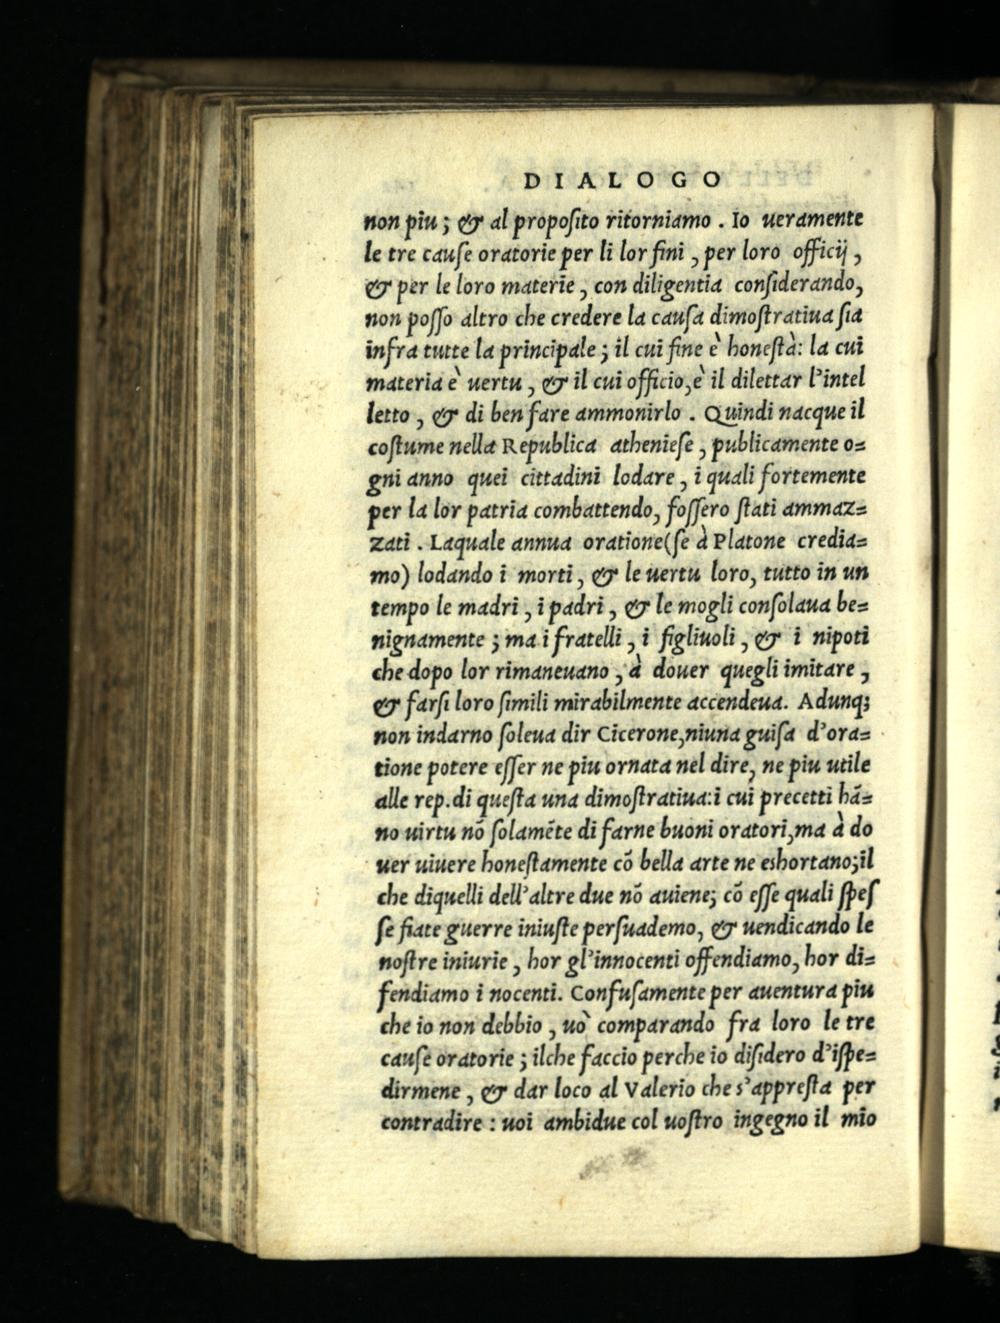 DIALOGO
non piu ; & al propoſito ritorniamo . Io ueramente
le tre cauſe oratorie per li lor fini , per loro officij ,
& per le loro materie , con diligentia conſiderando,
non poſſo altro che credere la cauſa dimoſtratiua ſia
infra tutte la principale ; il cui fine è honeſtà: la cui
materia è uertu , & il cui officio, è il dilettar l'intel
letto , & di ben fare ammonirlo . Quindi nacque il
coſtume nella Republica athenieſe , publicamente o=
gni anno quei cittadini lodare , i quali fortemente
per la lor patria combattendo, foſſero ſtati ammaz=
zati . Laquale annua oratione(ſe à Platone credia=
mo) lodando i morti , & le uertu loro, tutto in un
tempo le madri , i padri , & le mogli conſolaua be=
nignamente ; ma i fratelli , i figliuoli , & i nipoti
che dopo lor rimaneuano , à douer quegli imitare ,
& farſi loro ſimili mirabilmente accendeua. Adunq;
non indarno ſoleua dir Cicerone,niuna guiſa d'ora=
tione potere eſſer ne piu ornata nel dire, ne piu utile
alle rep.di queſta una dimoſtratiua:i cui precetti hã=
no uirtu nõ ſolamẽte di farne buoni oratori,ma à do
uer uiuere honeſtamente cõ bella arte ne eshortano;il
che diquelli dell'altre due nõ auiene; cõ eſſe quali ſpeſ
ſe fiate guerre iniuſte perſuademo, & uendicando le
noſtre iniurie , hor gl'innocenti offendiamo, hor di=
fendiamo i nocenti. Confuſamente per auentura piu
che io non debbio , uò comparando fra loro le tre
cauſe oratorie ; ilche faccio perche io diſidero d'iſpe=
dirmene , & dar loco al Valerio che s'appreſta per
contradire : uoi ambidue col uoſtro ingegno il mio